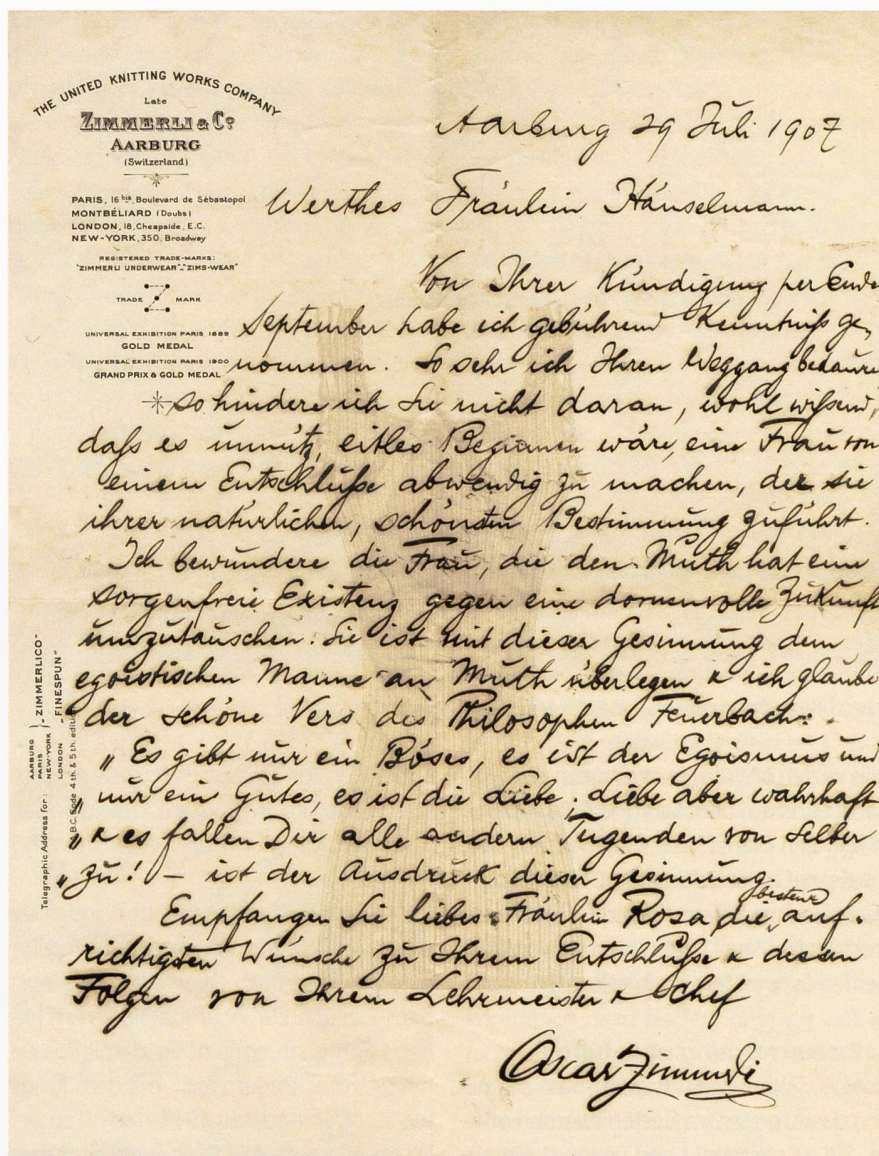 THE UNITED KNITTING WORKS COMPANY
Late
ZIMMERLI & Co
AARBURG
(Switzerland)
PARIS, 16 bis, Boulevard de Sébastopol
MONTBÉLIARD (Doubs)
LONDON, 18, Cheapside, E.C.
NEW-YORK, 350, Broadway
REGISTERED TRADE-MARKS:
"ZIMMERLI UNDERWEAR" "ZIMS-WEAR"
TRADE MARK
UNIVERSAL EXHIBITION PARIS 1889
GOLD MEDAL
UNIVERSAL EXHIBITION PARIS 1900
GRAND PRIX & GOLD MEDAL
Aarburg 29 Juli 1907
Werthes Fräulein Hänselmann.
Von Ihrer Kündigung per Ende
September habe ich gebührend Kenntniß ge-
nommen. So sehr ich Ihren Weggang bedaure
so hindere ich Sie nicht daran, wohl wißend,
daß es unnütz, eitles Beginnen wäre, eine Frau von
einem Entschluße abwendig zu machen, der sie
ihrer natürlichen, schönsten Bestimmung zuführt.
Ich bewundere die Frau, die den Muth hat eine
sorgenfreie Existenz gegen eine dornenvolle Zukunft
umzutauschen. Sie ist mit dieser Gesinnung dem
egoistischen Manne an Muth überlegen & ich glaube
der schöne Vers des Philosophen Feuerbach:
„Es gibt nur ein Böses, es ist der Egoismus und
„nur ein Gutes, es ist die Liebe. Liebe aber wahrhaft
„& es fallen Dir alle andern Tugenden von selber
„zu! – ist der Ausdruck dieser Gesinnung.
Empfangen Sie liebes Fräulein Rosa die besten, auf-
richtigsten Wünsche zu Ihrem Entschluße & dessen
Folgen von Ihrem Lehrmeister & Chef
Oscar Zimmerli
Telegraphic Address for: AARBURG PARIS NEW-YORK } "ZIMMERLICO"
LONDON "FINESPUN"
A.B.C. Code 4th & 5th edition